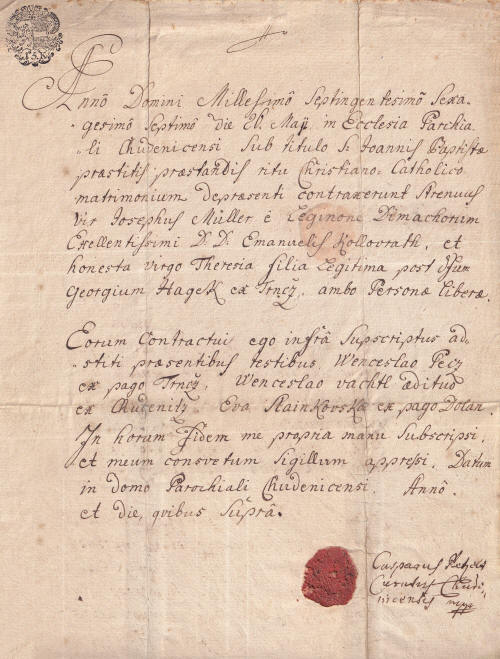 Annō Domini Millesimō Septingentesimō Sexa-
-gesimō Septimō die 26. Maji in Ecclesia Parchia-
-li Chudenicensi Sub titulo S: Ioannis Baptistæ
præstitis præstandis ritu Christiano-Catholico
matrimonium depræsenti contraxerunt Strenuus
vir Josephus Müller è Leginone Dimachorum
Exellentissimi D: D: Emanuelis Kollovrath, et
honesta virgo Theresia filia Legitima post
Georgium Hagek ex Trncz, ambo Personæ liberæ.
Eorum Contractui ego infrà Supscriptus ad-
-stiti præsentibus testibus, Wenceslao Pecz
ex pago Trncz, Wenceslao Vachtl ædituō
ex Chudenitz, Eva Stainkovska ex pago Dolan.
In horum Fidem me propria manu Subscripsi,
et meum consvetum Sigillum appressi. Datum
in domo Parochiali Chudenicensi. Annō.
et die, quibus Suprà.
Casparus
Curatus Chude-
nicensis mpp